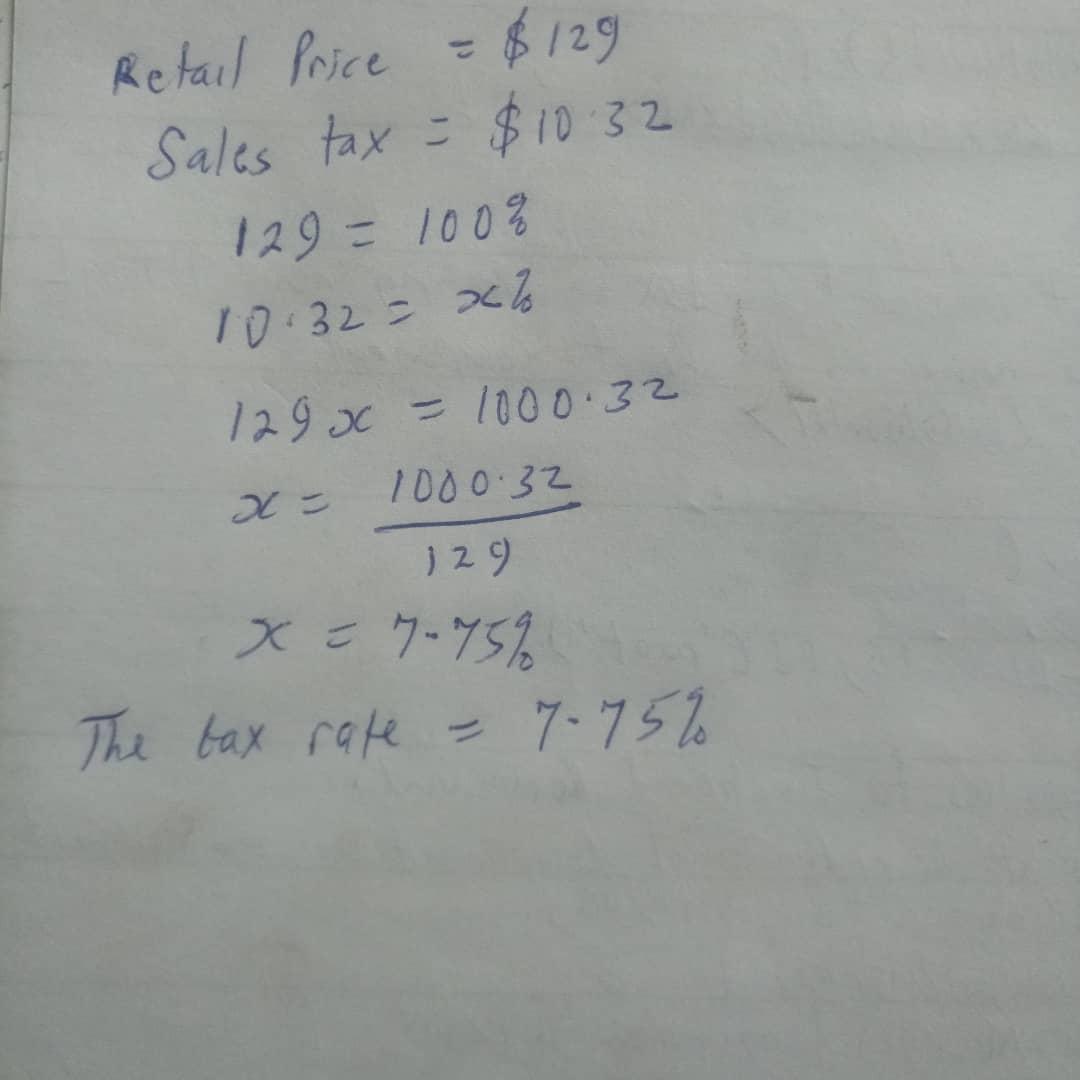 Retail Price = $129
Sales tax = $10.32
129 = 100%
10.32 = x%
129x = 1000.32
x = 1000.32
129
x = 7.75%
The tax rate = 7.75%